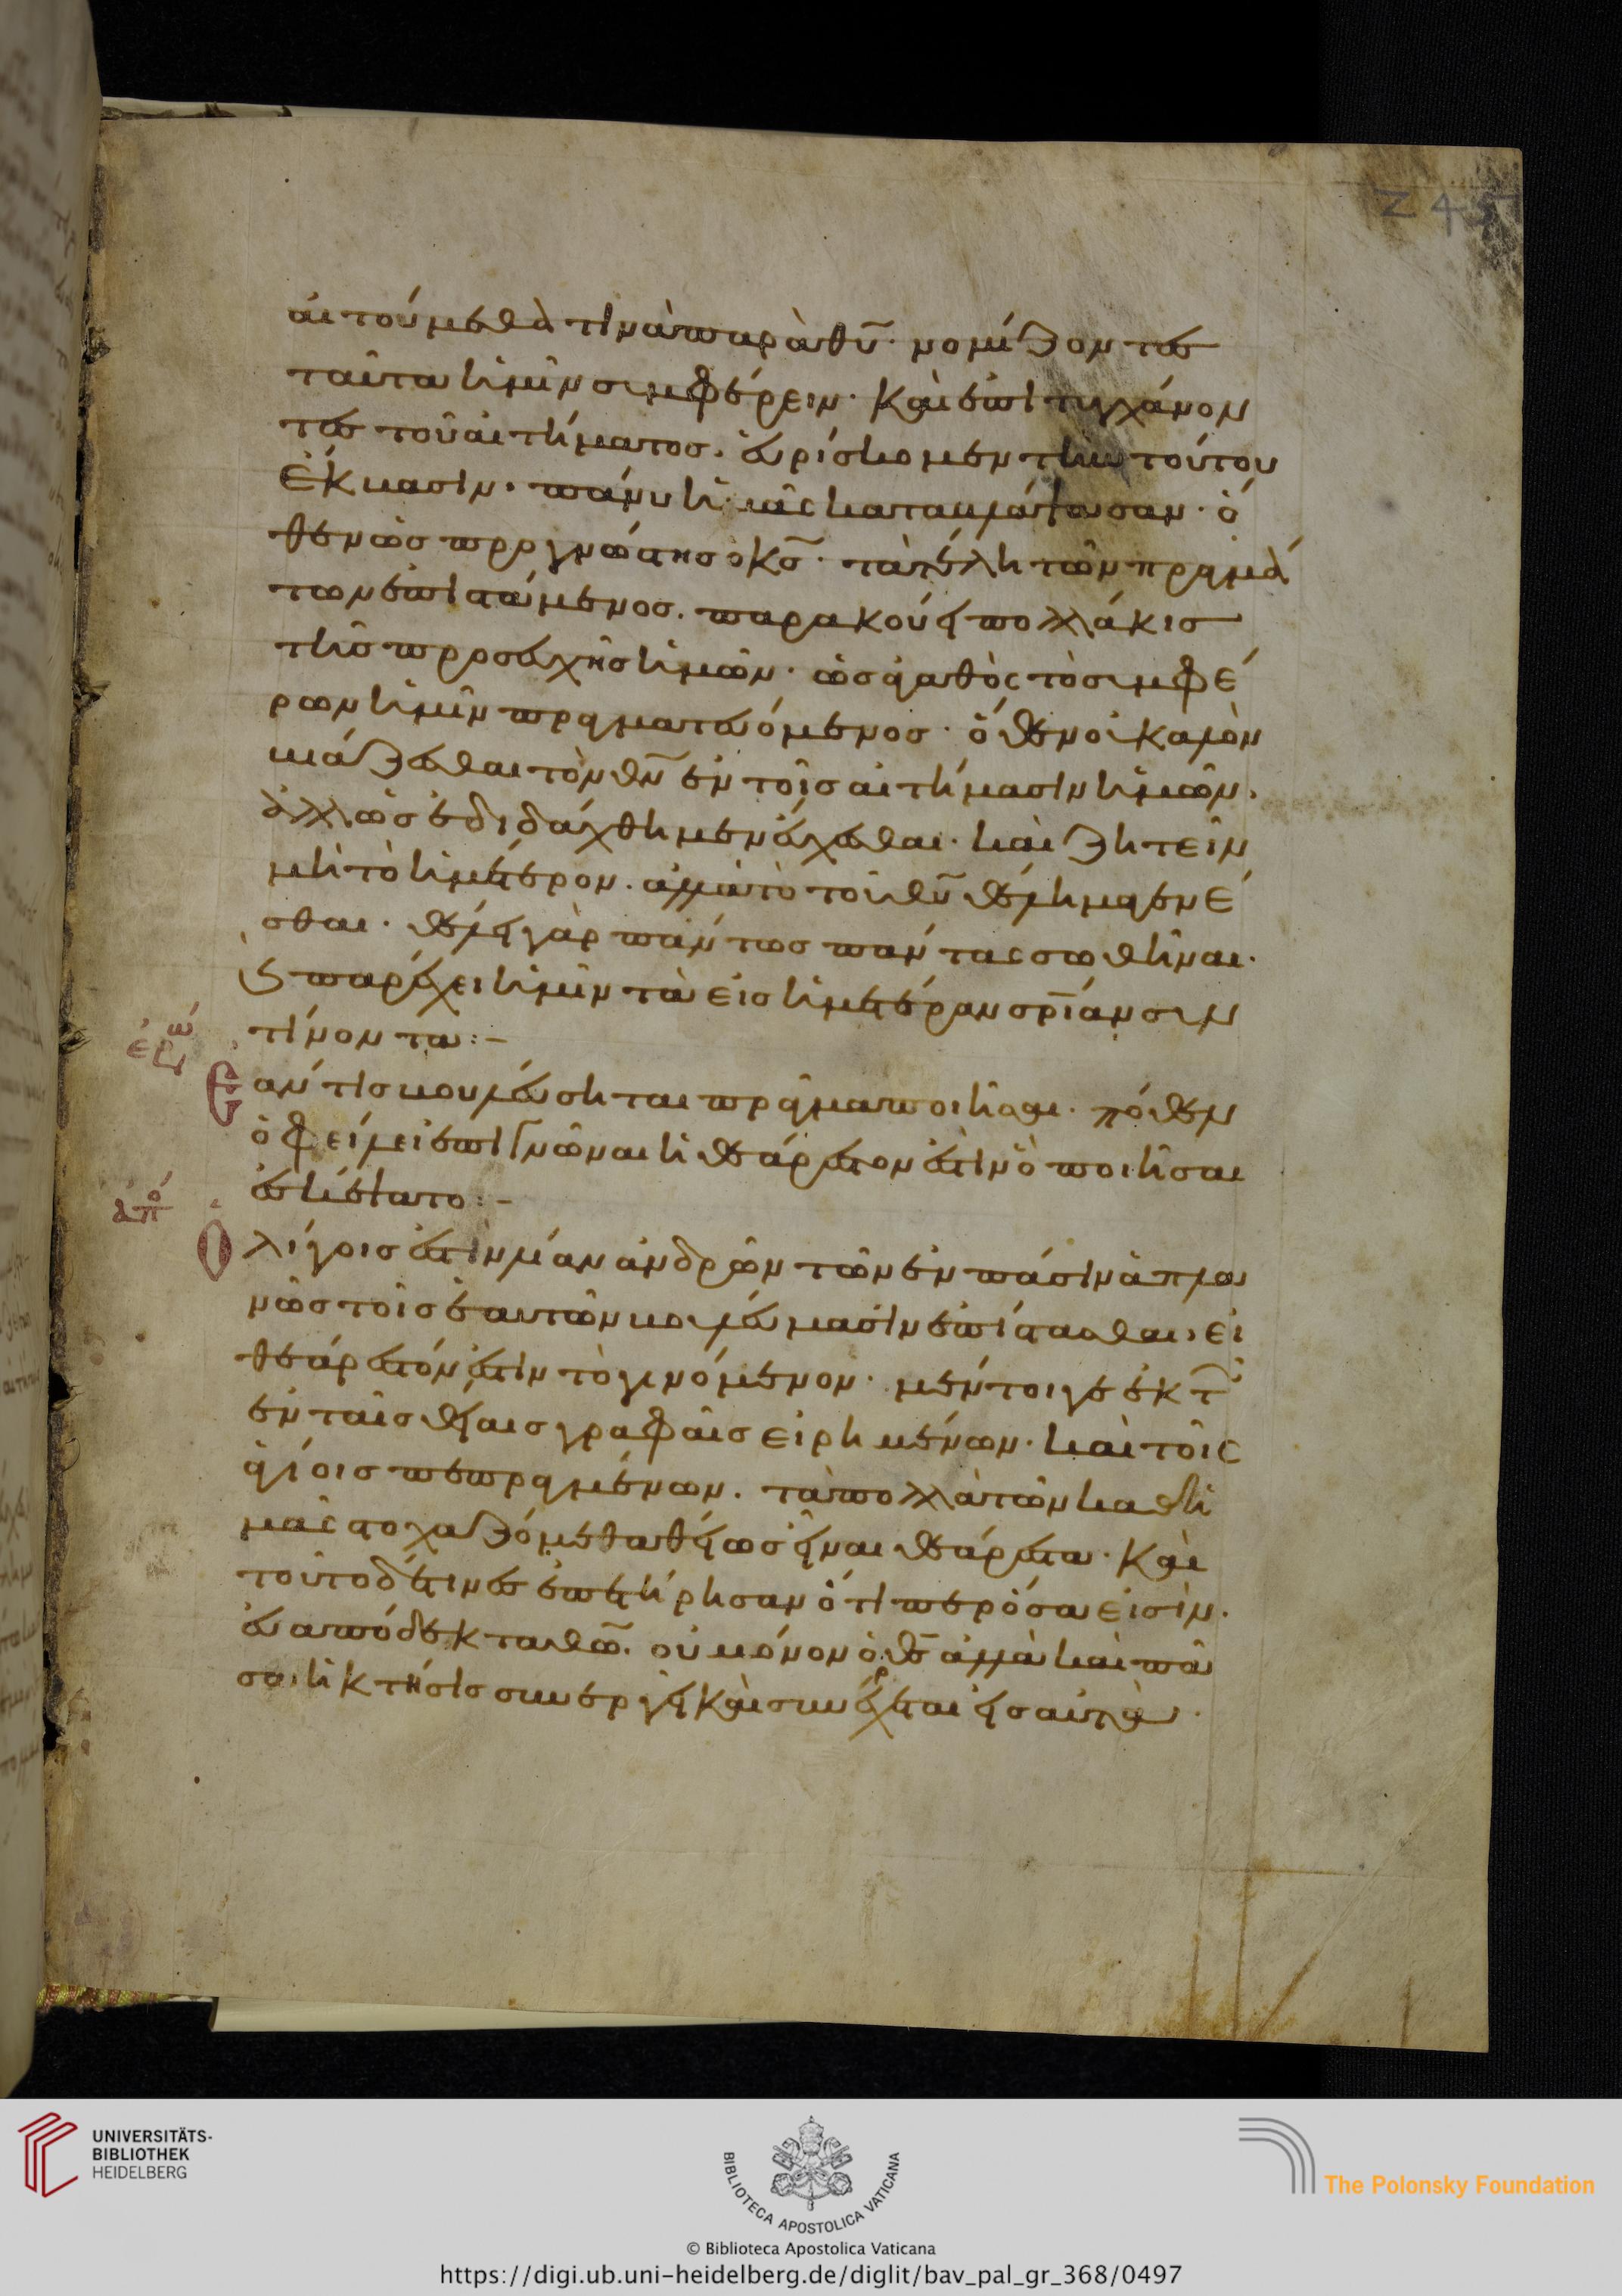 245
αἰτούμεθα τινὰ παρὰ θυ̅· νομίζοντες
ταῦτα ἡμῖν συμφέρειν· καὶ ἐπιτυγχάνον
τες τοῦ αἰτήματος. εὑρίσκομεν τὴν τούτου
ἔκβασιν· πάνυ ἡμᾶς καταβλάπτουσαν· ὁ
θεν ὡς προγνώστης ὁ κσ̅· τὰ τέλη τῶν πραγμά
των ἐπιστάμενος. παρακούει πολλάκις
τῆς προσευχῆς ἡμῶν· ὡς ἀγαθὸς τὸ συμφέ
ρων ἡμῖν πραγματευόμενος· ὅθεν οὐ καλὸν
βιάζεσθαι τὸν θν̅ ἐν τοῖς αἰτήμασιν ἡμῶν.
ἀλλ' ὡς ἐδιδάχθημεν εὔχεσθαι· καὶ ζητεῖν
μὴ τὸ ἡμέτερον. ἀλλὰ τὸ τοῦ θυ̅ θέλημα γενέ
σθαι· θέλει γὰρ πάντως πάντας σωθῆναι·
καὶ παρέχει ἡμῖν τὰ εἰς ἡμετέραν σρ̅ίαν συν
τίνοντα:-
ἐρώ
Ἐὰν τις βουλεύσηται πρᾶγμα ποιῆσαι. πόθεν
ὀφείλει ἐπιγνῶναι ἢ θεάρεστον ἐστὶν ὃ ποιῆσαι
ἐσκέψατο:-
ἀπό
Ὀλίγοις ἐστὶν λίαν ἀνδρῶν τῶν ἐν πάσιν ἀπλα
νῶς τοῖς ἑαυτῶν βουλεύμασιν ἐπίστασθαι, εἰ
θεάρεστόν ἐστιν τὸ γινόμενον· μέντοιγε ἐκ τῶν
ἐν ταῖς θείαις γραφαῖς εἰρημένων· καὶ τοῖς
ἁγίοις πεπραγμένων. τὰ πολλὰ τῶν καθ' ἡ
μᾶς στοχαζόμεθα θείως εἶναι θεάρεστα· καὶ
τοῦτο δέ τινες ἐπετήρησαν ὅτι περ ὅσα εἰσὶν.
εὐαπόδεκτα θω̅. οὐ μόνον ὁ θσ̅ ἀλλὰ καὶ πᾶ
σα ἡ κτῆσις συνεργεῖ καὶ συνέρχεται εἰς αὐτὰ·
UNIVERSITÄTS-
BIBLIOTHEK
HEIDELBERG
BIBLIOTECA APOSTOLICA VATICANA
The Polonsky Foundation
© Biblioteca Apostolica Vaticana
https://digi.ub.uni-heidelberg.de/diglit/bav_pal_gr_368/0497